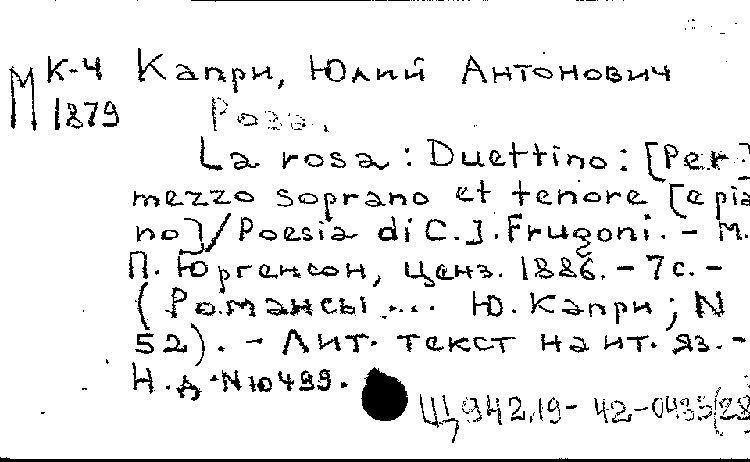 М К-4 Капри, Юлий Антонович
1879 Роза.
La rosa : Duettino : [Per]
mezzo soprano et tenore [e pia
no]/Poesia di C. J. Frugoni. - М.
П. Юргенсон, ценз. 1886. - 7 с. -
(Романсы ... Ю. Капри ; N
52). - Лит. текст на ит. яз. -
Н. д. N 10499.
Щ 942.19 - 42-0435(28)